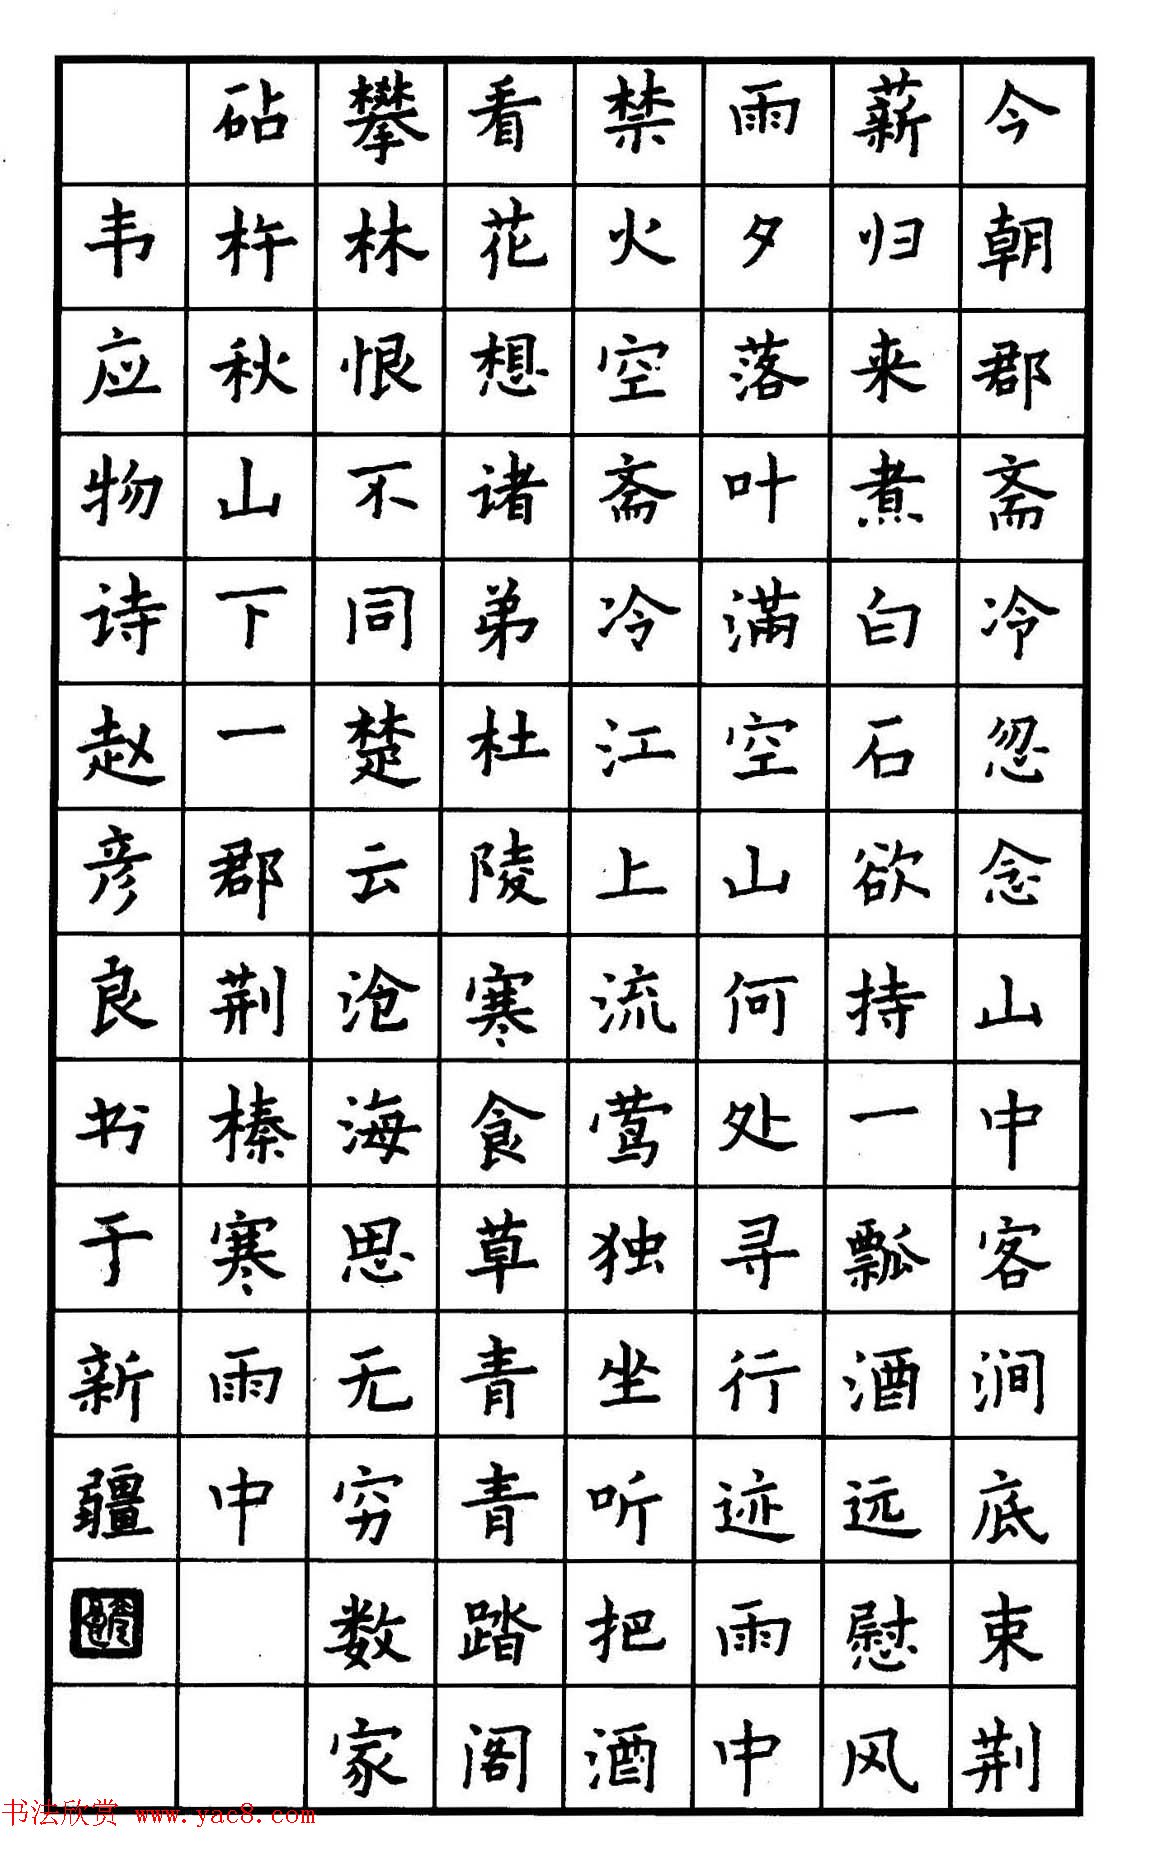 今朝郡斋冷忽念山中客涧底束荆
薪归来煮白石欲持一瓢酒远慰风
雨夕落叶满空山何处寻行迹雨中
禁火空斋冷江上流莺独坐听把酒
看花想诸弟杜陵寒食草青青踏阁
攀林恨不同楚云沧海思无穷数家
砧杵秋山下一郡荆榛寒雨中
韦应物诗赵彦良书于新疆
书法欣赏 www.yac8.com